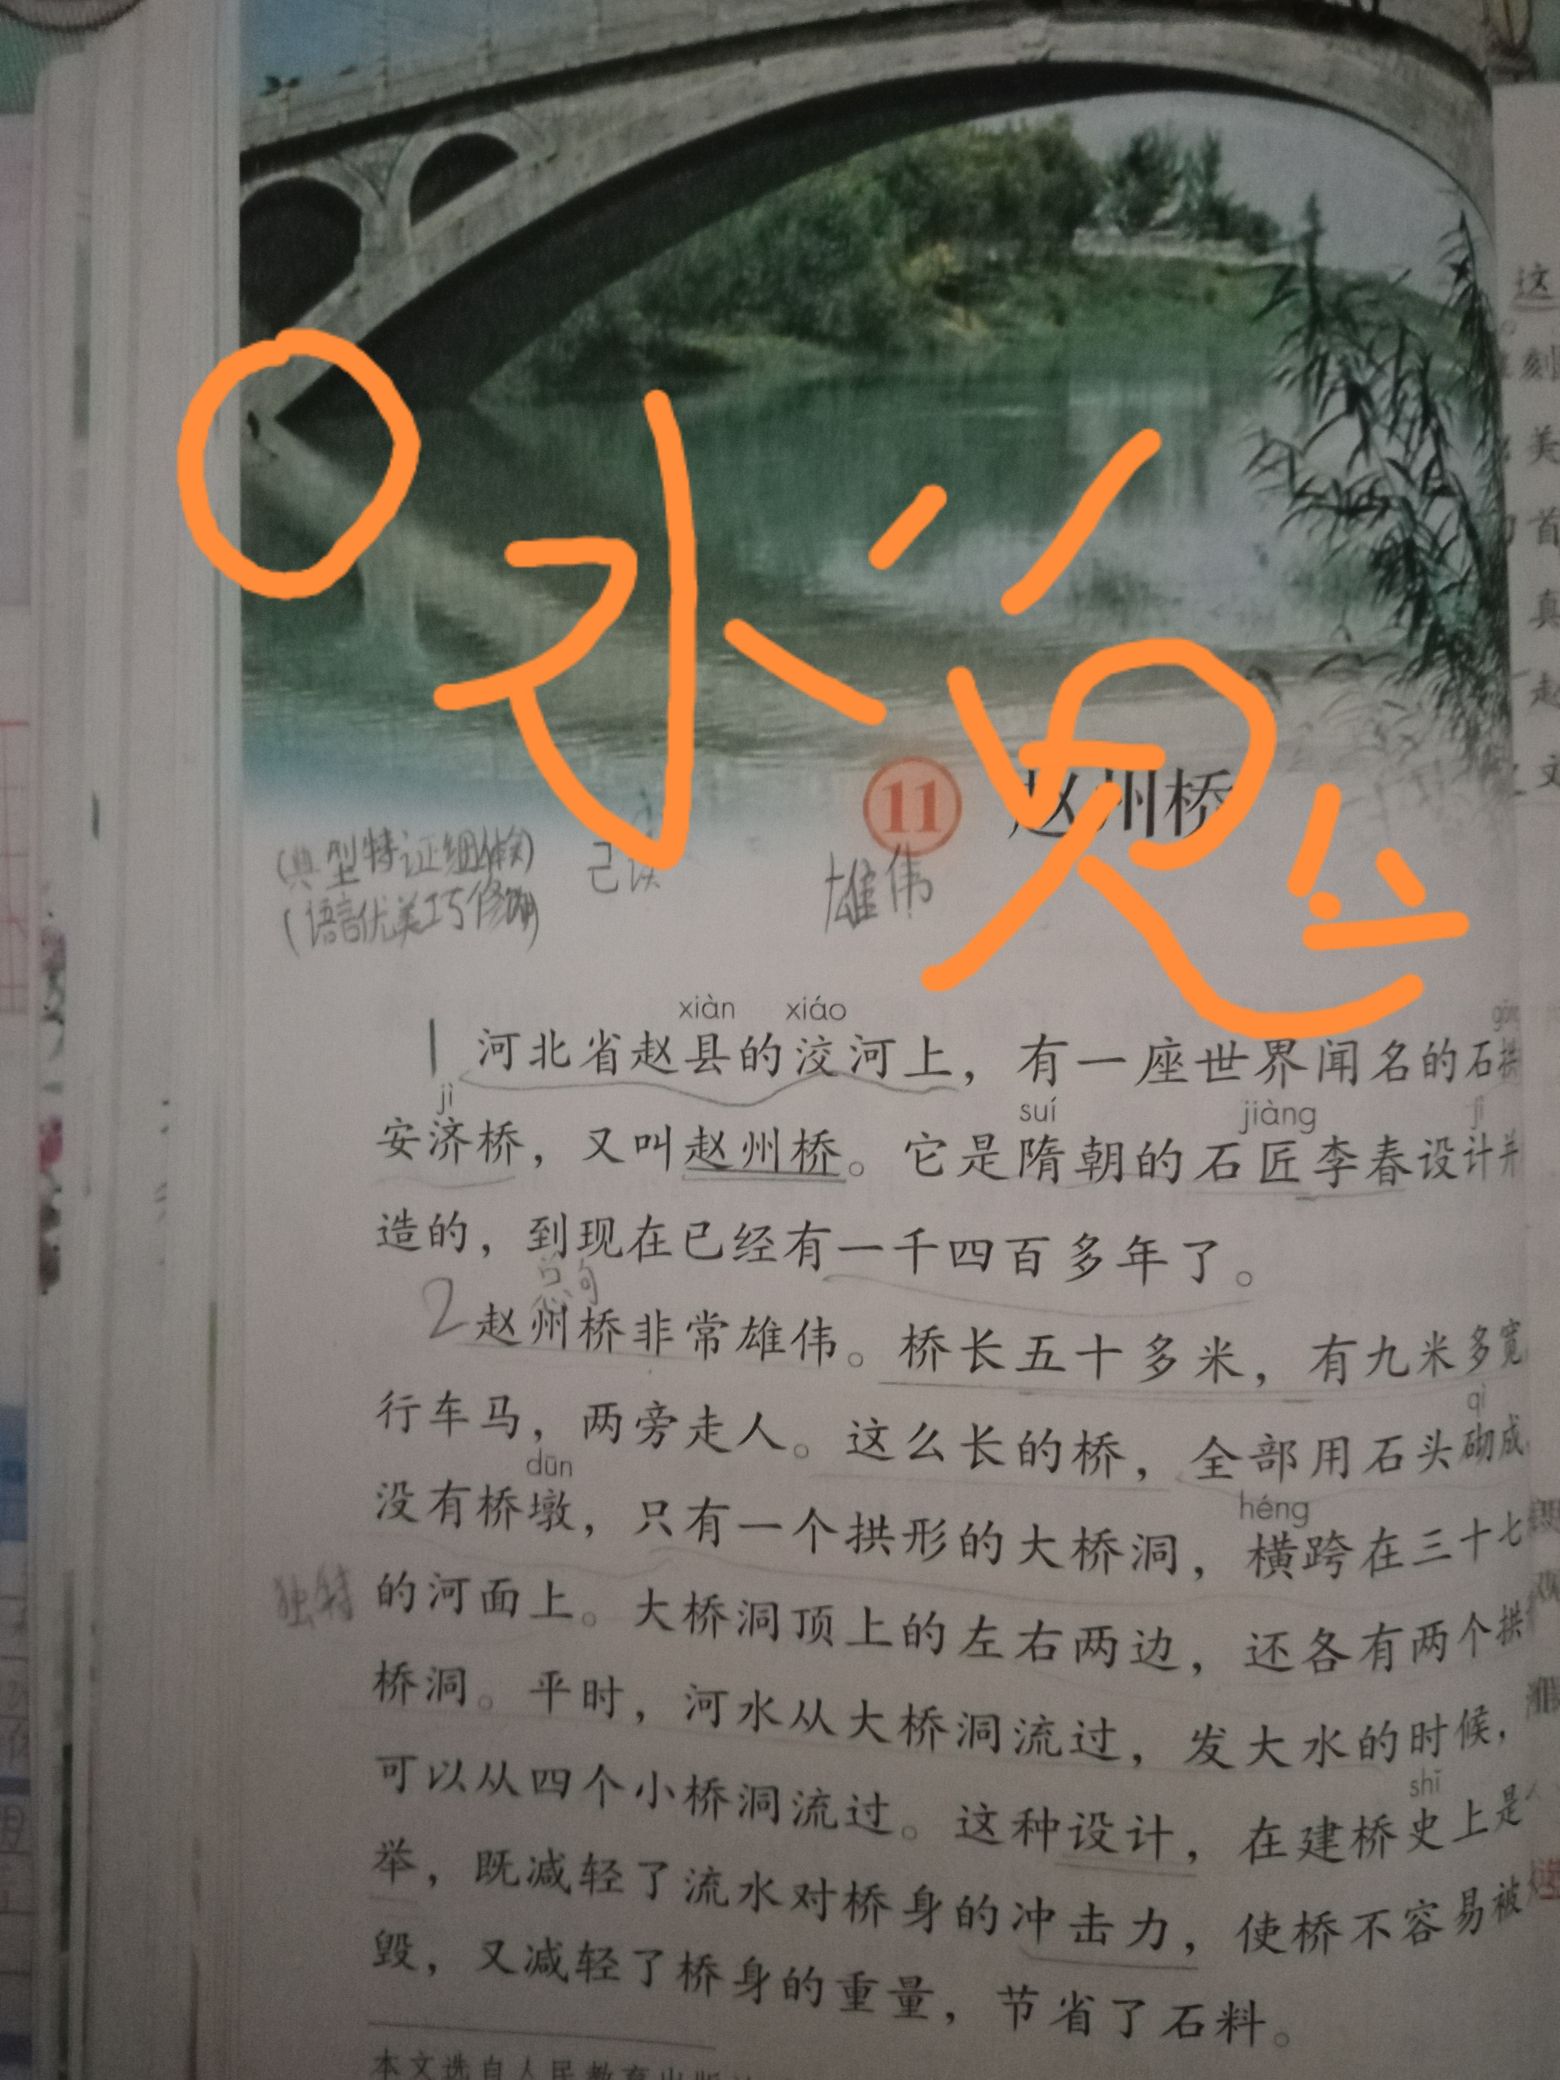 水鬼
11 赵州桥
(典型特证细体矣)
(语言优美工巧修饰)
己读
雄伟
xiàn xiáo
1 河北省赵县的洨河上，有一座世界闻名的石拱
jì suí jiàng jì
安济桥，又叫赵州桥。它是隋朝的石匠李春设计并
造的，到现在已经有一千四百多年了。
总句
2 赵州桥非常雄伟。桥长五十多米，有九米多宽
qì
行车马，两旁走人。这么长的桥，全部用石头砌成
dūn héng
没有桥墩，只有一个拱形的大桥洞，横跨在三十七
独特
的河面上。大桥洞顶上的左右两边，还各有两个拱
桥洞。平时，河水从大桥洞流过，发大水的时候，
shǐ
可以从四个小桥洞流过。这种设计，在建桥史上是
举，既减轻了流水对桥身的冲击力，使桥不容易被
毁，又减轻了桥身的重量，节省了石料。
本文选自人民教育出版
这
刻
美
首
真
起
文